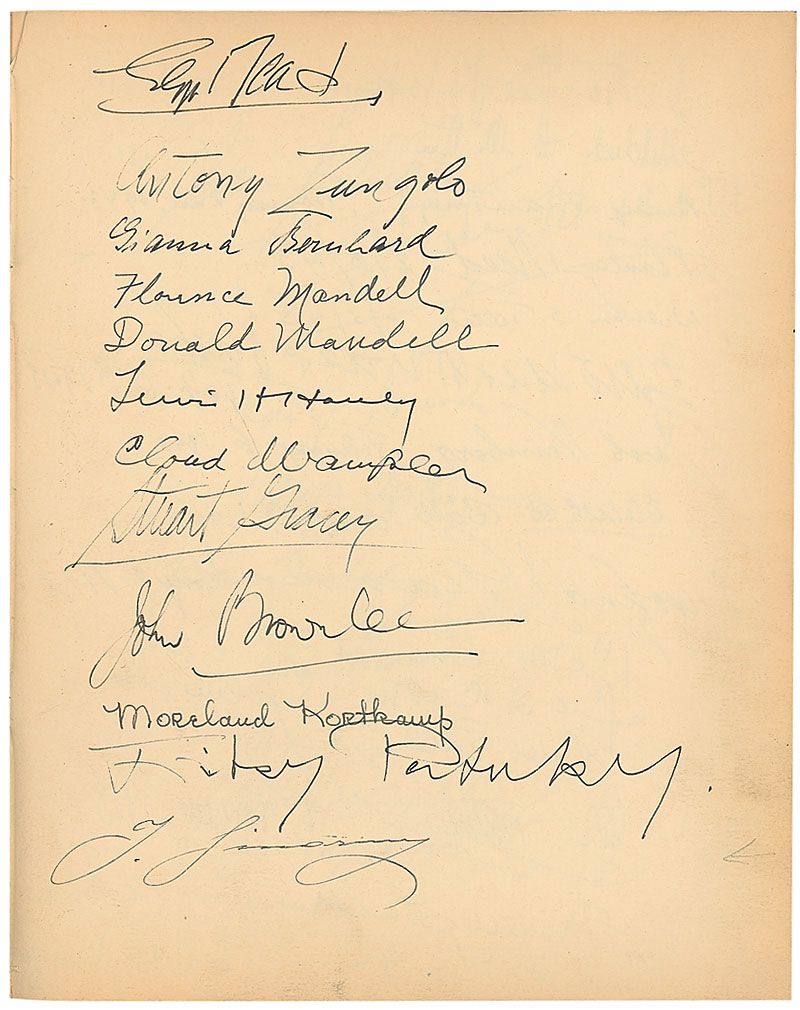 Antony Zungolo
Gianna Bernhard
Florence Mandell
Donald Mandell
Lewis H Haney
Cloud Wampler
Stuart Gracey
John Brownlee
Moreland Kortkamp
Fitzy